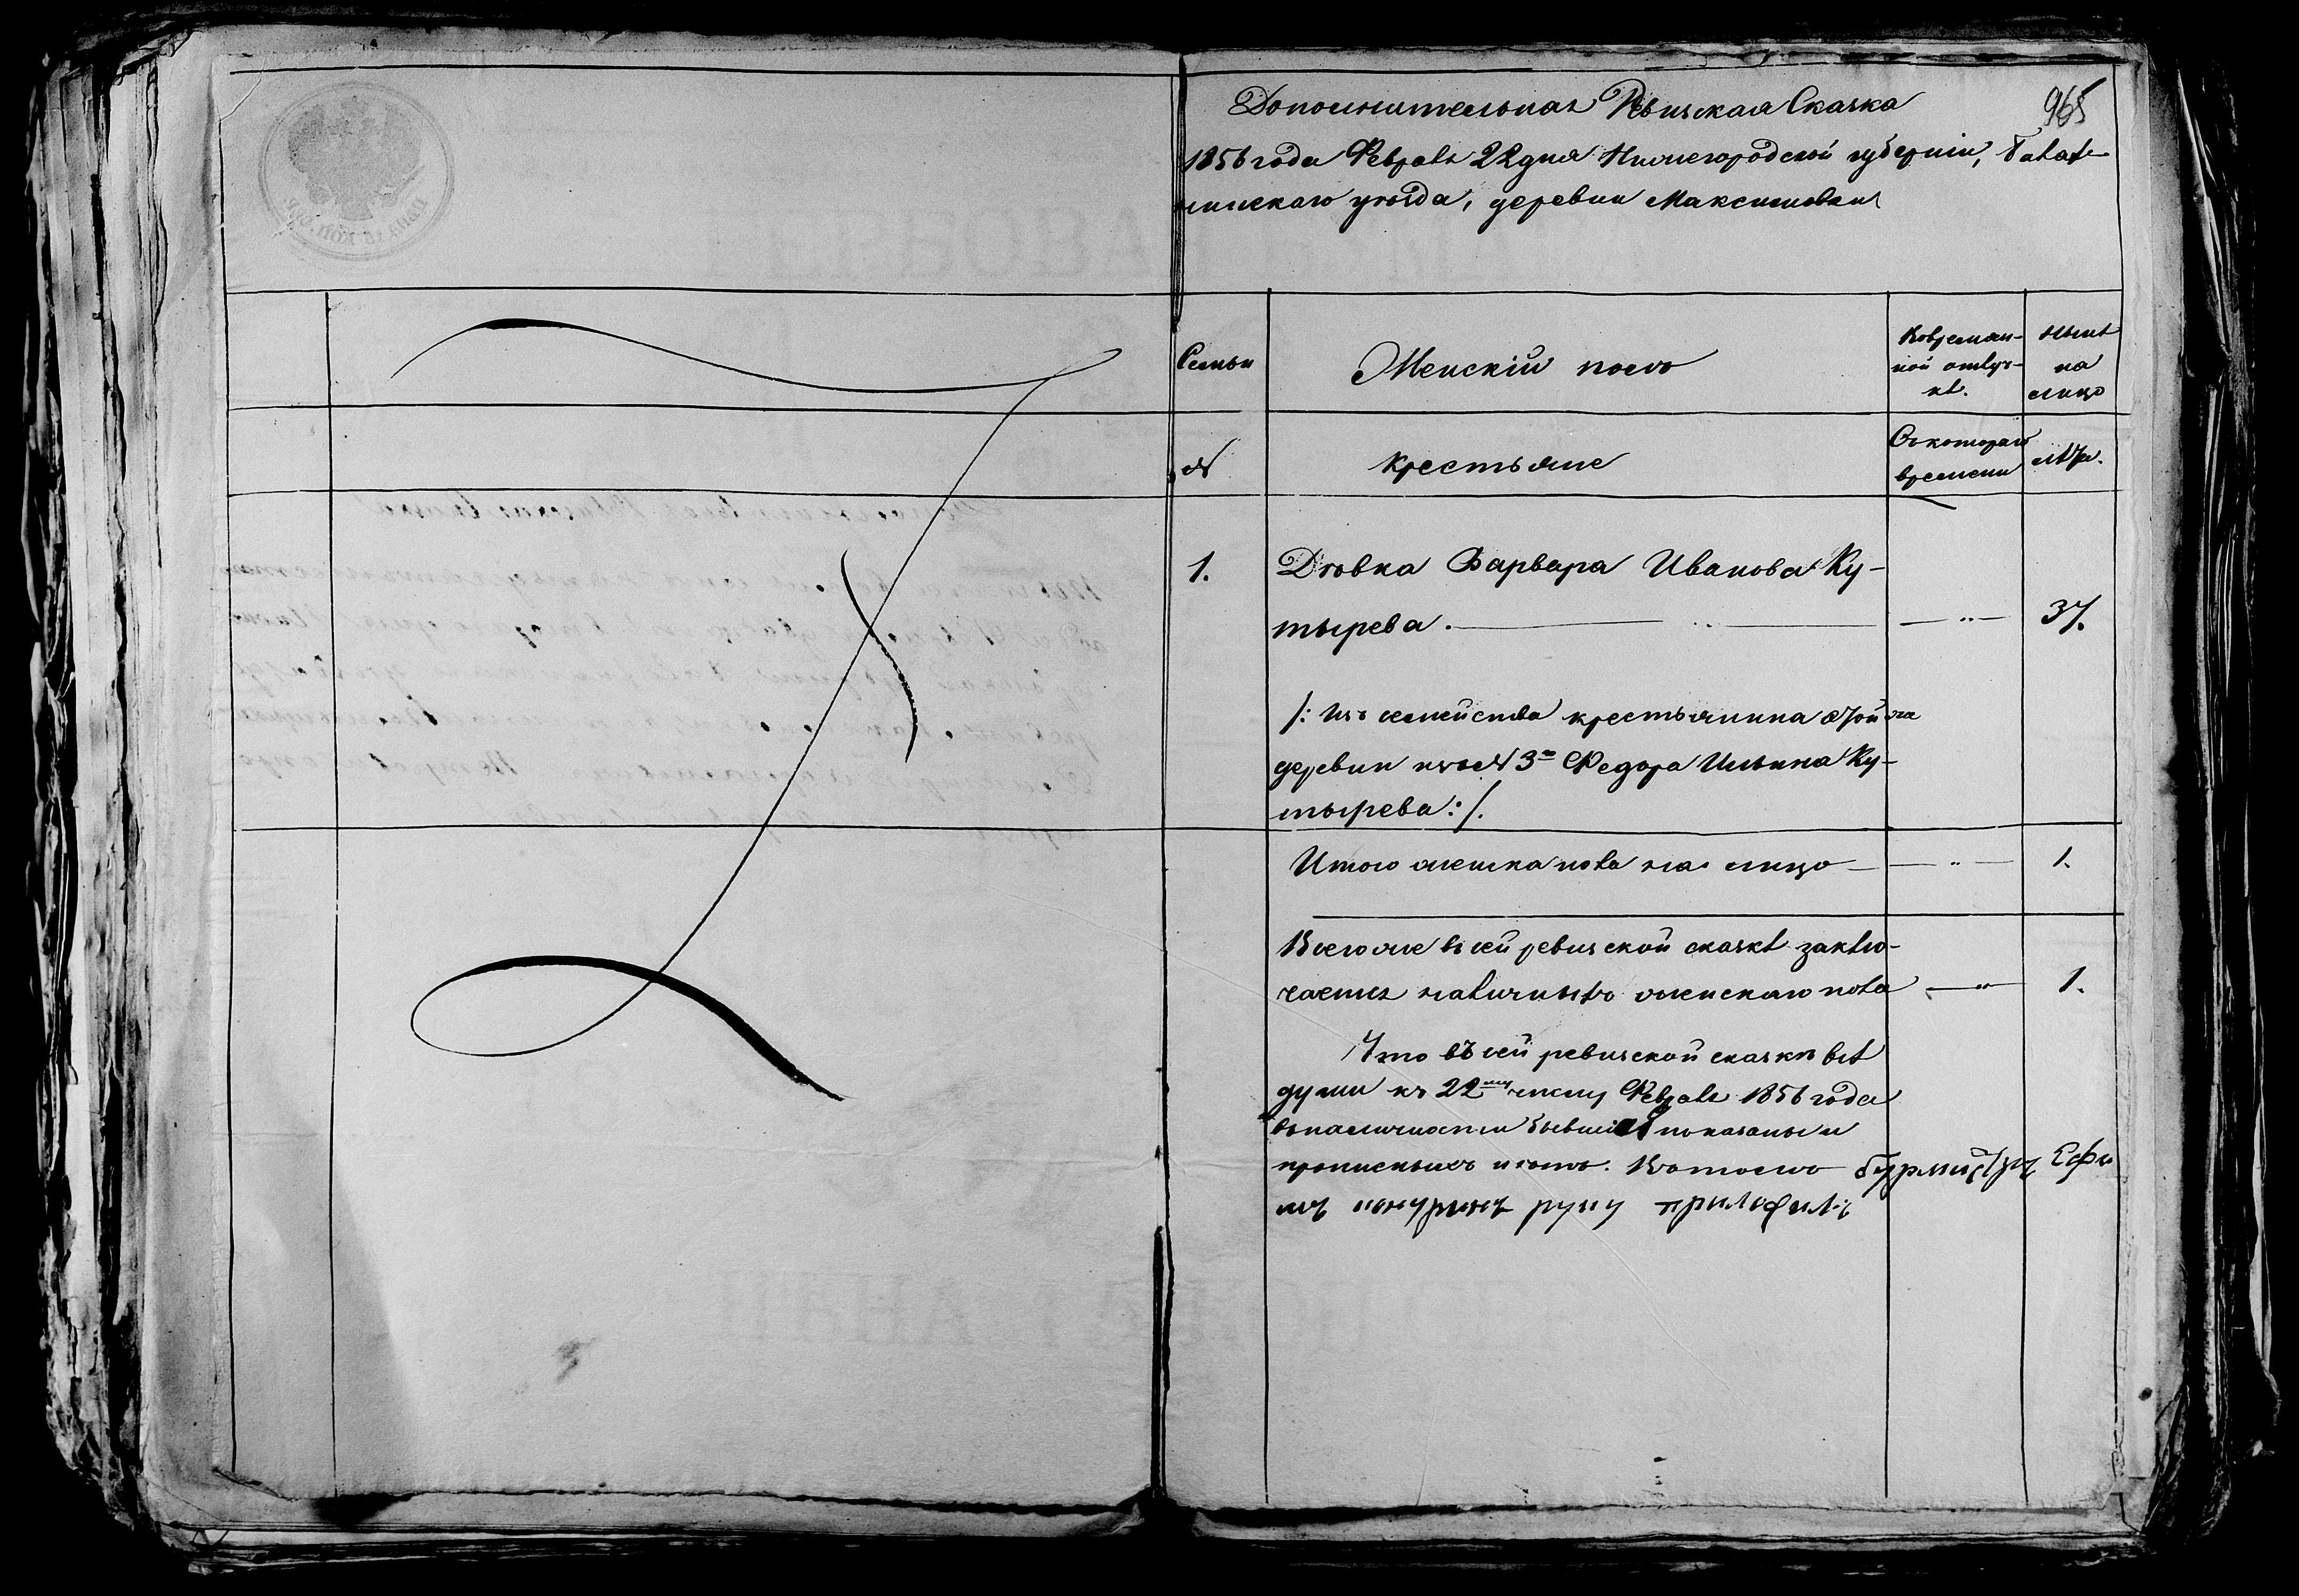 965
Дополнительная Ревизская Сказка
1856 года Февраля 22 дня Нижегородской губернiи, Балах-
нинскаго уѣзда, деревни Максимовки
Семьи
Женскiй полъ
Во временной отлучкѣ.
Нынѣ на лицо
№
Крестьяне
Съ котораго времени
лѣта.
1.
Дѣвка Варвара Иванова Ку-
тырева. — „ — 37.
/: изъ семейства крестьянина этой же
деревни изъ № 3го Федора Ильина Ку-
тырева :/.
Итого женска пола на лицо — „ — 1.
Всего же в сей ревизской сказкѣ заклю-
чается наличныхъ женскаго пола — „ — 1.
Что въ сей ревизской сказкѣ всѣ
души къ 22му числу Февраля 1856 года
въ наличности бывшiя показаны и
прописныхъ нѣтъ. Въ томъ бурмистръ Ефи
мъ руку приложилъ